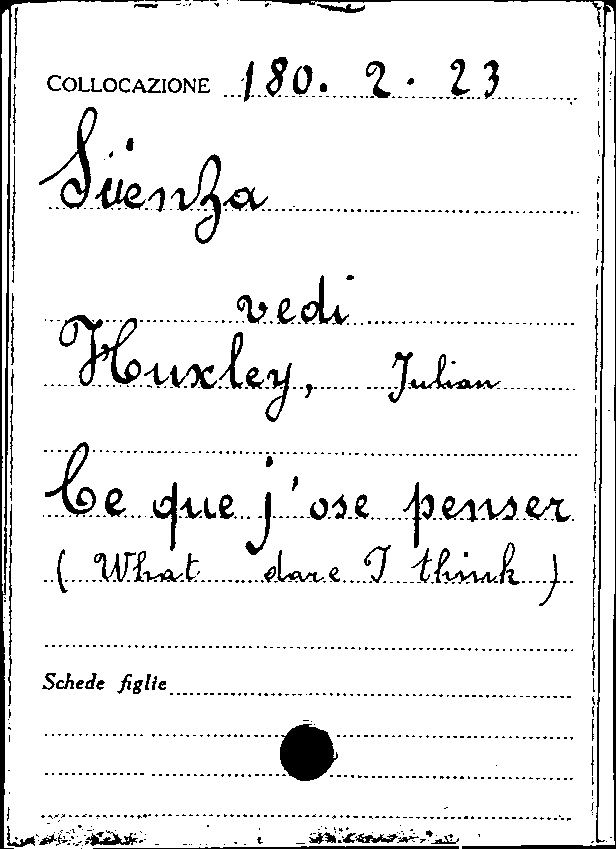 COLLOCAZIONE 180. 2. 23
Scienza
vedi
Huxley, Julian
Ce que j'ose penser
( What dare I think )
Schede figlie